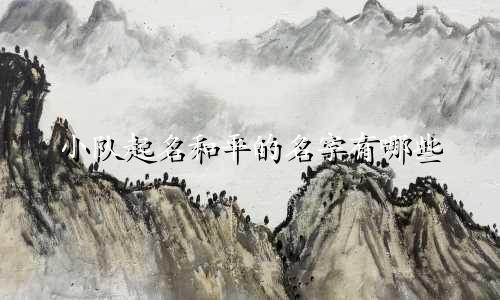 小队起名和平的名字有哪些